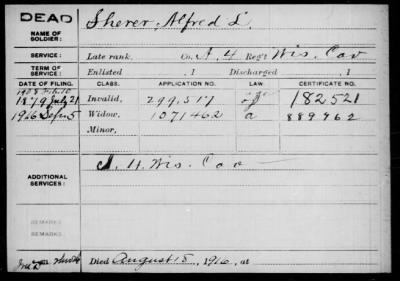 DEAD
NAME OF SOLDIER: Sherer, Alfred L.
SERVICE: Late rank, Co. A, 4 Reg't Wis. Cav
TERM OF SERVICE: Enlisted , 1 Discharged , 1
DATE OF FILING. CLASS. APPLICATION NO. LAW CERTIFICATE NO.
1908 Feb. 10
1879 July 21 Invalid, 299,517 182521
1916 Sep 5 Widow, 1071462 a 889962
Minor,
ADDITIONAL SERVICES: Wis. Cav
REMARKS
REMARKS
Died August 15, 1916, at